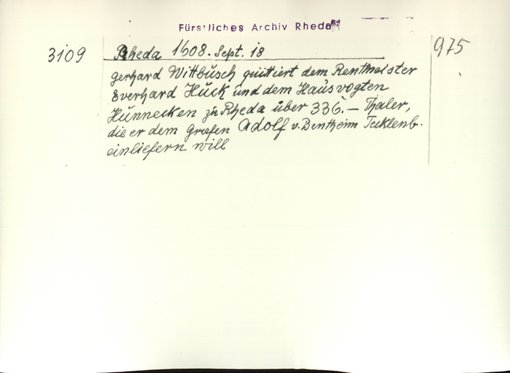 Fürstliches Archiv Rheda
3109 Rheda 1608. Sept. 18 975
gerhard Wittbüsch quittiert dem Rentmeister
Everhard Huck und dem Hausvogten
Hünnecken zu Rheda über 336.– Thaler,
die er dem grefen Adolf v. Bentheim Tecklenb.
einliefern will